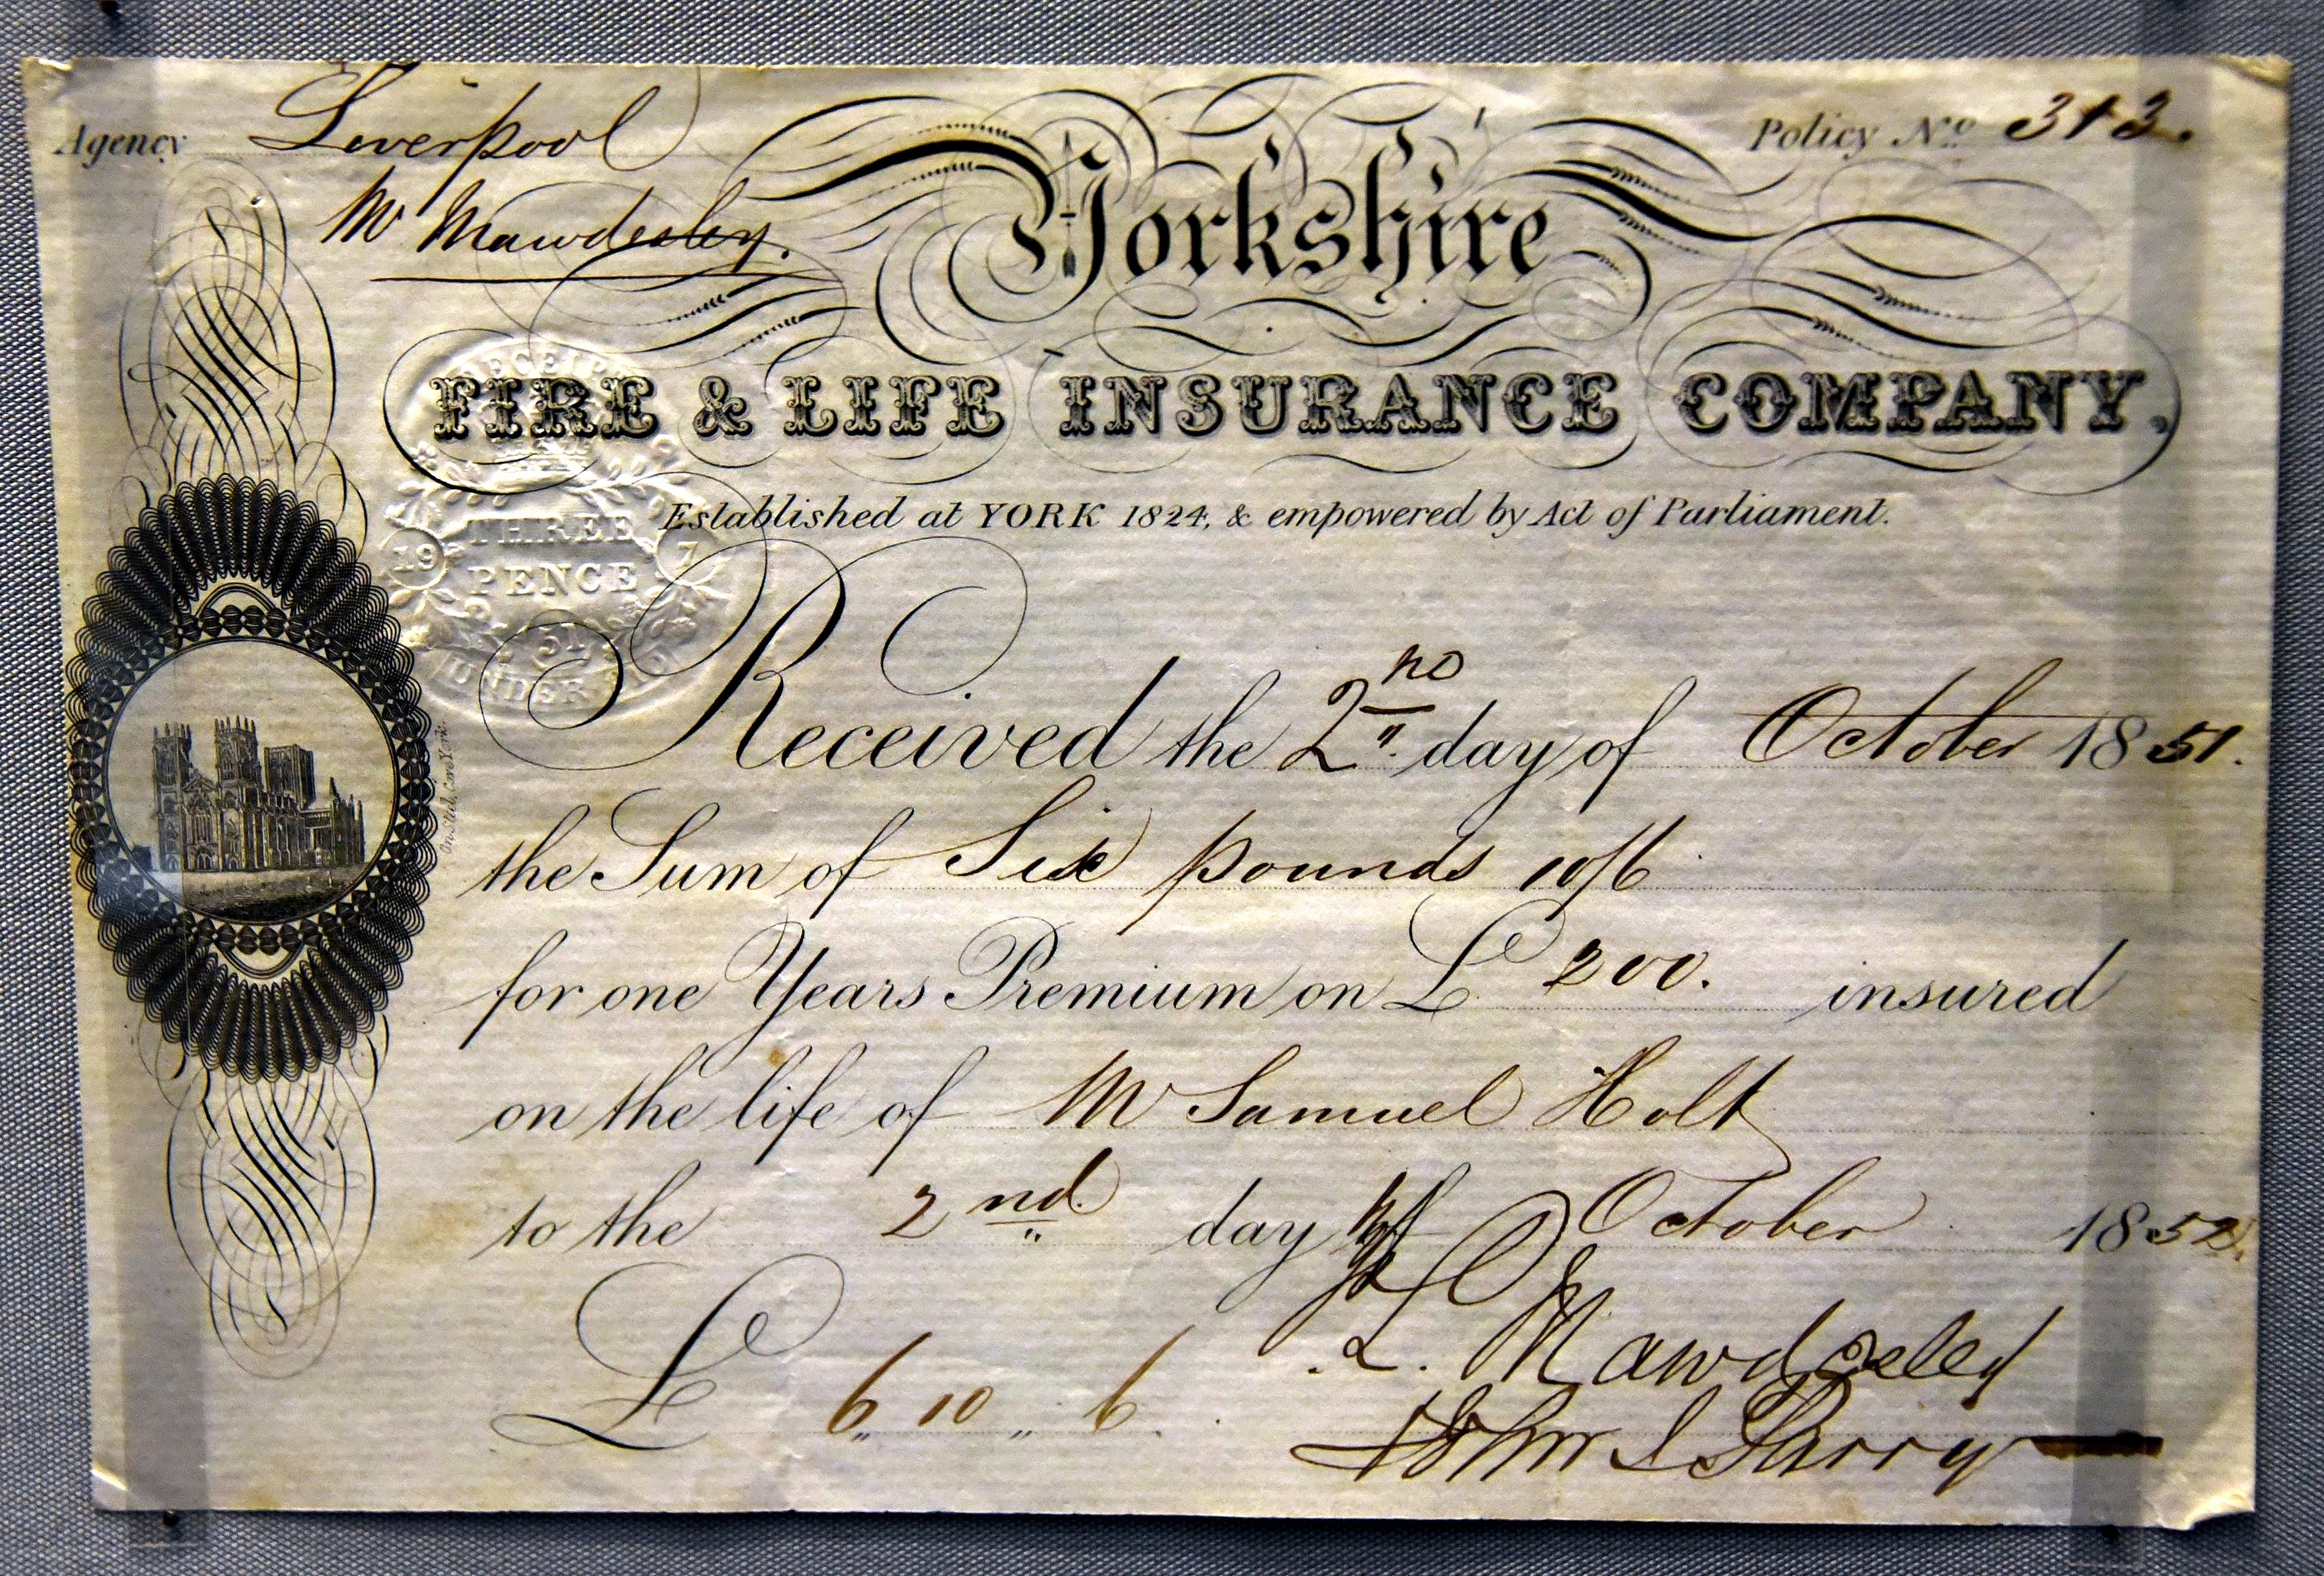 Agency Liverpool
Policy No 313.
Mr Mawdesley.
Yorkshire
FIRE & LIFE INSURANCE COMPANY,
Established at YORK 1824, & empowered by Act of Parliament.
RECEIPT
THREE
19 7
PENCE
51
UNDER
Received the 2nd day of October 1851.
the Sum of Six pounds 10/6
for one Years Premium on £ 200. insured
on the life of Mr Samuel Holt
to the 2nd day of October 1852
£ 6 „ 10 „ 6.
Mawdsley
John Parry